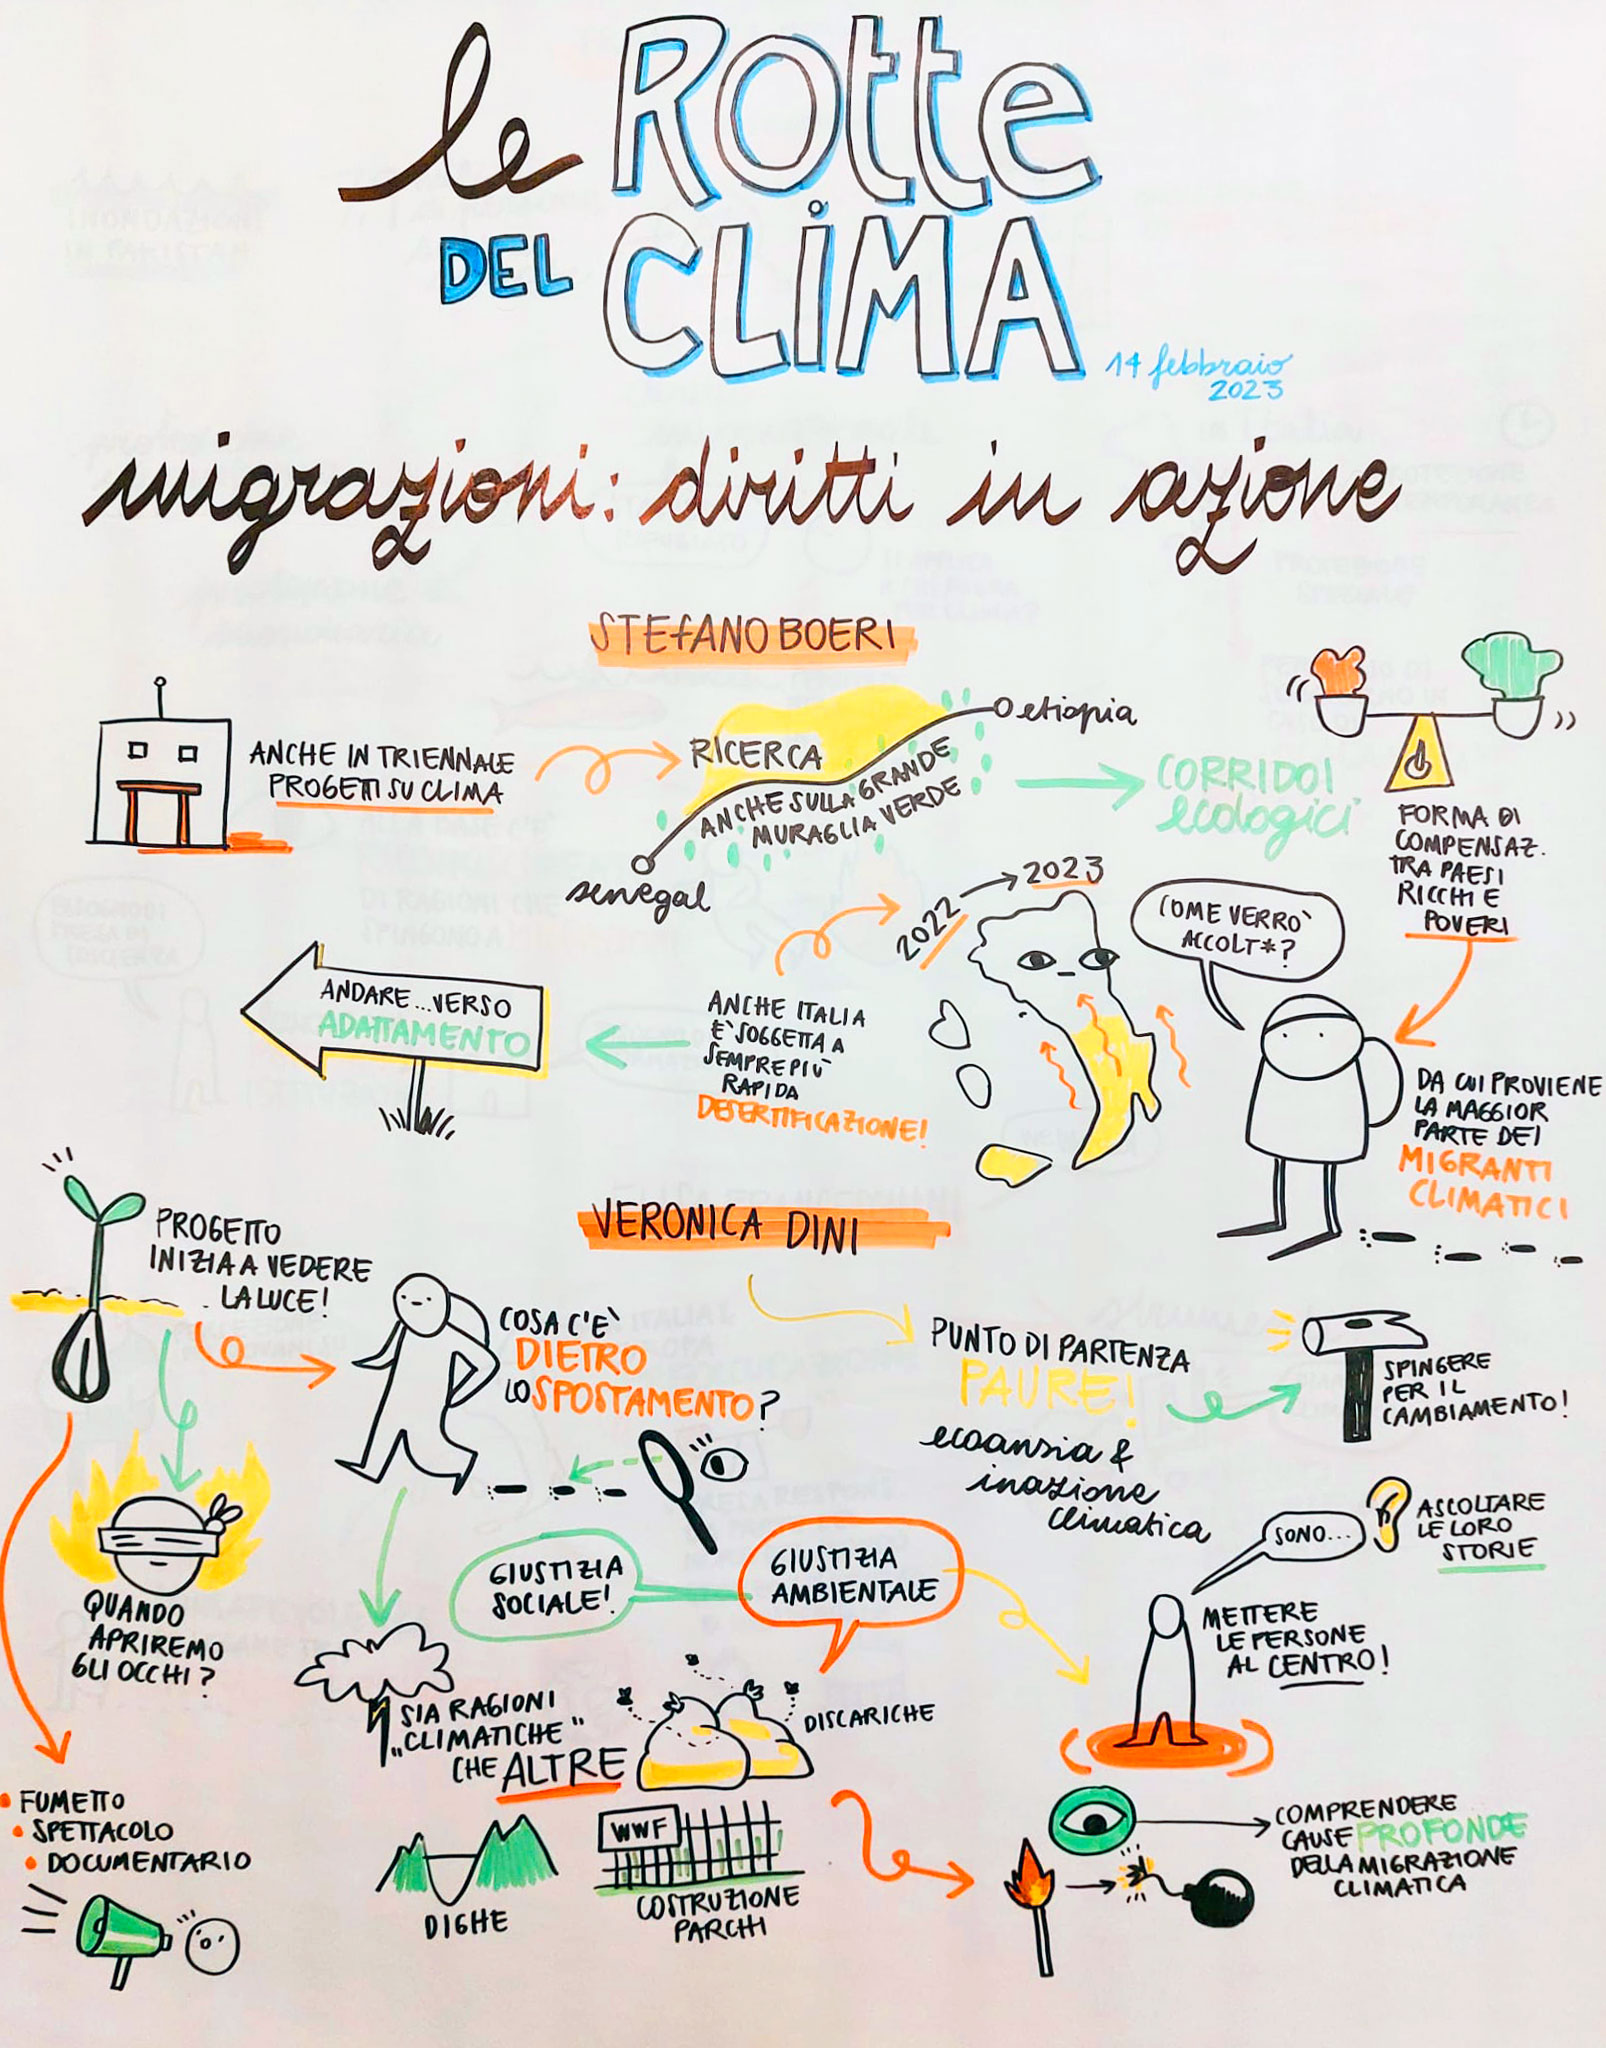 le ROTTE
DEL CLIMA
14 febbraio
2023
migrazioni: diritti in azione
STEFANO BOERI
ANCHE IN TRIENNALE
PROGETTI SU CLIMA
RICERCA
ANCHE SULLA GRANDE
MURAGLIA VERDE
etiopia
senegal
CORRIDOI
ecologici
FORMA DI
COMPENSAZ.
TRA PAESI
RICCHI E
POVERI
DA CUI PROVIENE
LA MAGGIOR
PARTE DEI
MIGRANTI
CLIMATICI
COME VERRÒ
ACCOLT*?
2022
2023
ANCHE ITALIA
È SOGGETTA A
SEMPRE PIÙ
RAPIDA
DESERTIFICAZIONE!
ANDARE...VERSO
ADATTAMENTO
VERONICA DINI
PROGETTO
INIZIA A VEDERE
LA LUCE!
COSA C'È
DIETRO
LO SPOSTAMENTO?
PUNTO DI PARTENZA
PAURE!
ecoansia &
inazione
climatica
SPINGERE
PER IL
CAMBIAMENTO!
QUANDO
APRIREMO
GLI OCCHI?
GIUSTIZIA
SOCIALE!
GIUSTIZIA
AMBIENTALE
SONO...
ASCOLTARE
LE LORO
STORIE
METTERE
LE PERSONE
AL CENTRO!
SIA RAGIONI
"CLIMATICHE"
CHE ALTRE
DISCARICHE
FUMETTO
SPETTACOLO
DOCUMENTARIO
DIGHE
WWF
COSTRUZIONE
PARCHI
COMPRENDERE
CAUSE PROFONDE
DELLA MIGRAZIONE
CLIMATICA